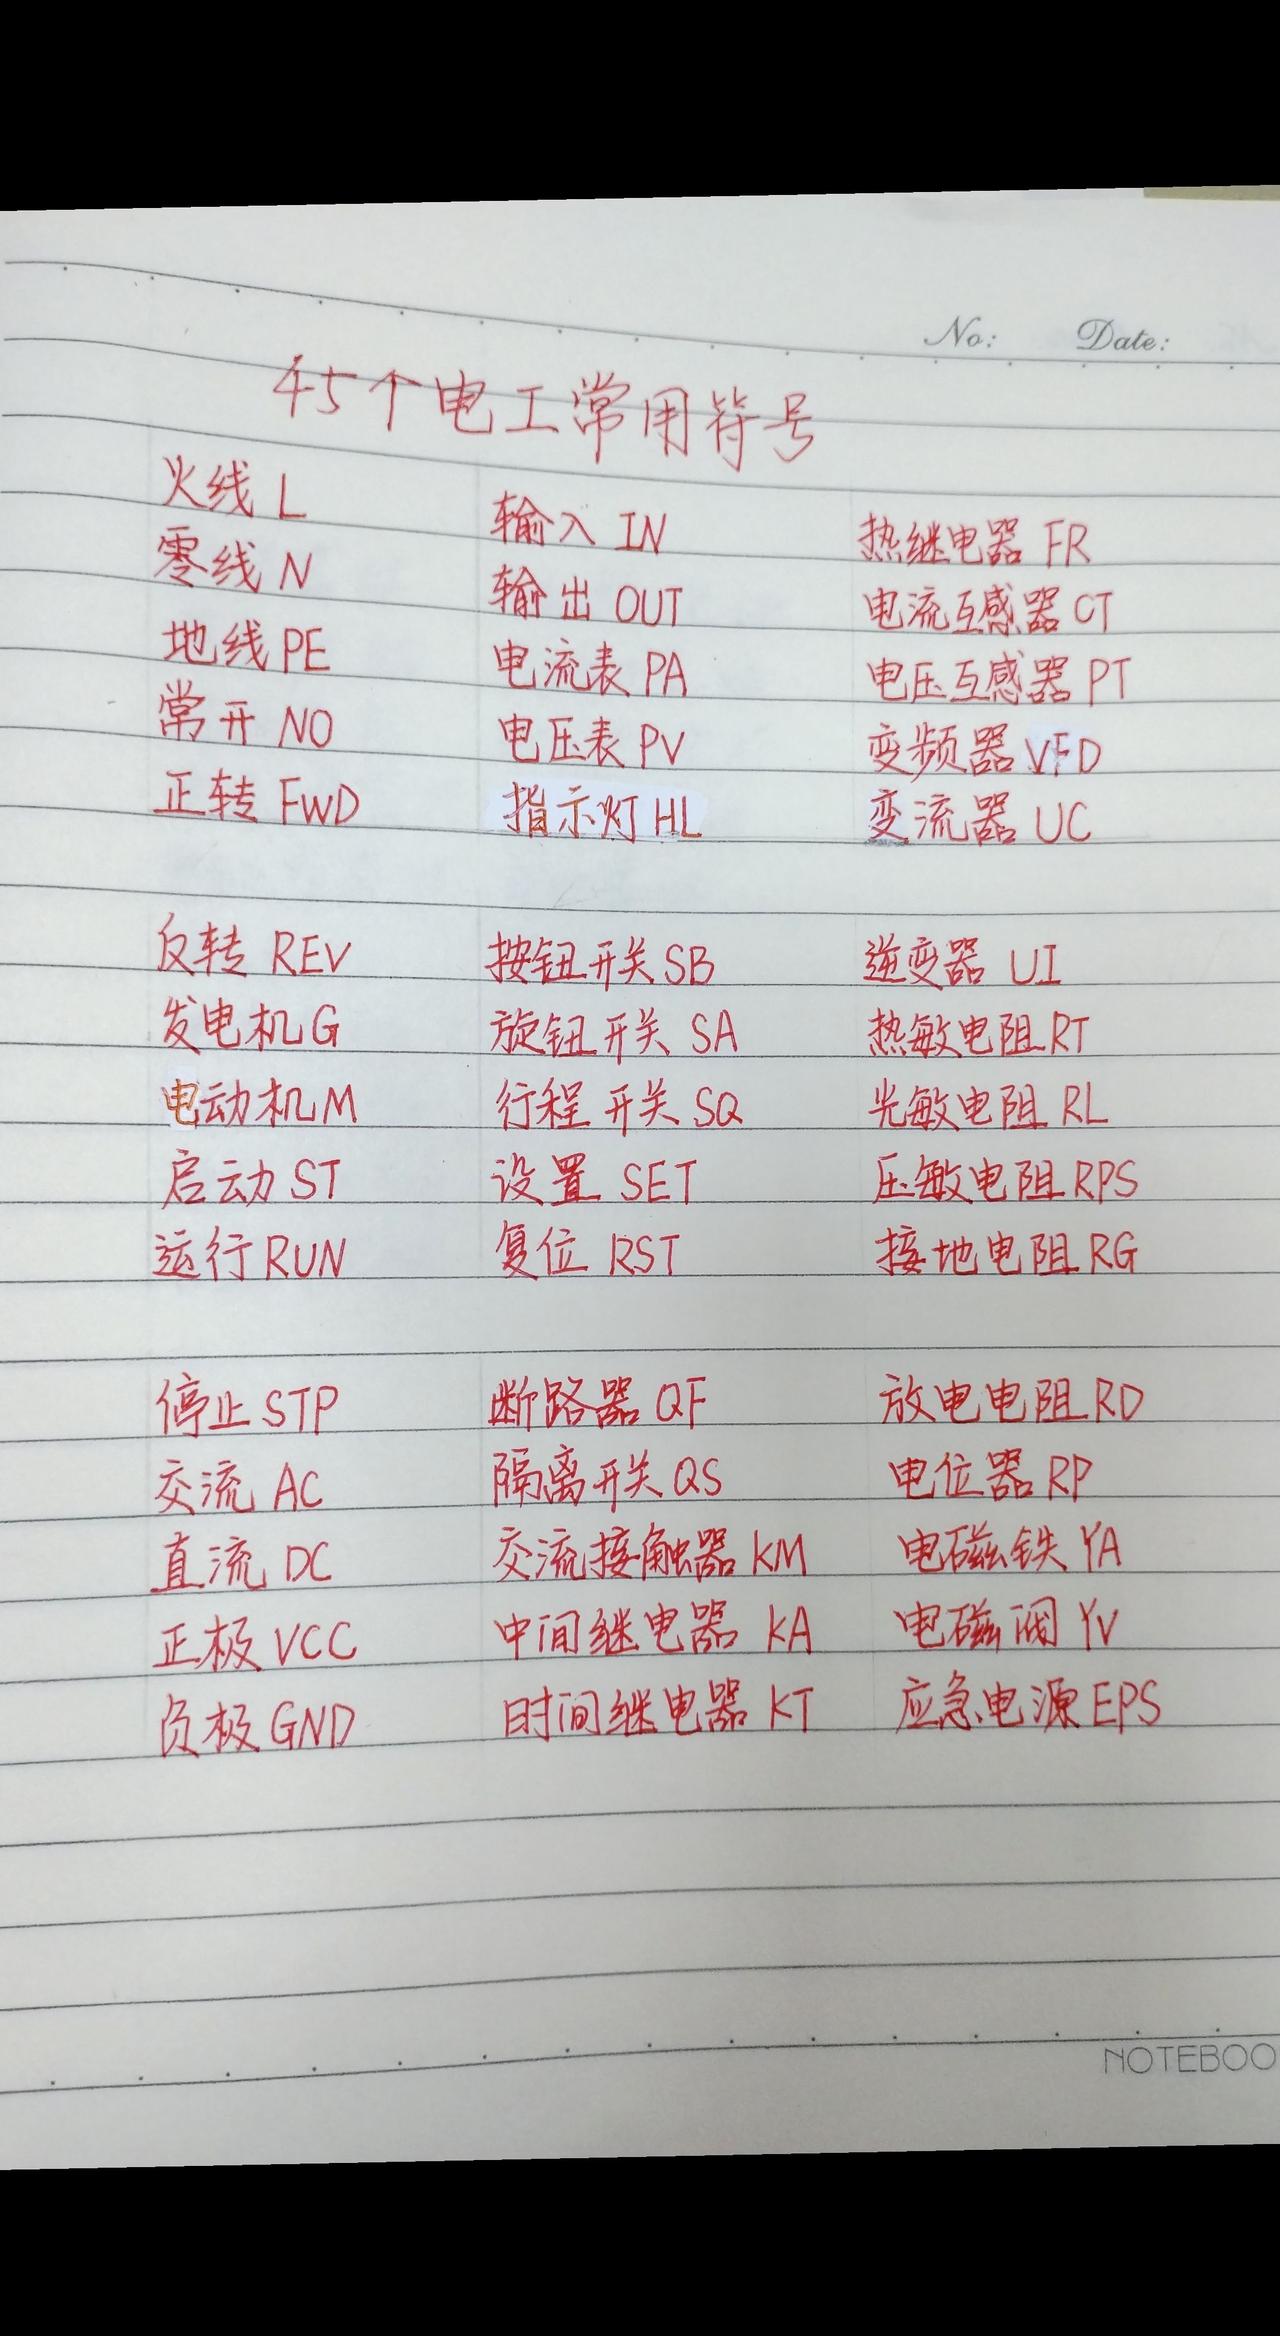 No: Date:
45个电工常用符号
火线 L 输入 IN 热继电器 FR
零线 N 输出 OUT 电流互感器 CT
地线 PE 电流表 PA 电压互感器 PT
常开 NO 电压表 PV 变频器 VFD
正转 FWD 指示灯 HL 变流器 UC
反转 REV 按钮开关 SB 逆变器 UI
发电机 G 旋钮开关 SA 热敏电阻 RT
电动机 M 行程开关 SQ 光敏电阻 RL
启动 ST 设置 SET 压敏电阻 RPS
运行 RUN 复位 RST 接地电阻 RG
停止 STP 断路器 QF 放电电阻 RD
交流 AC 隔离开关 QS 电位器 RP
直流 DC 交流接触器 KM 电磁铁 YA
正极 VCC 中间继电器 KA 电磁阀 YV
负极 GND 时间继电器 KT 应急电源 EPS
NOTEBOO